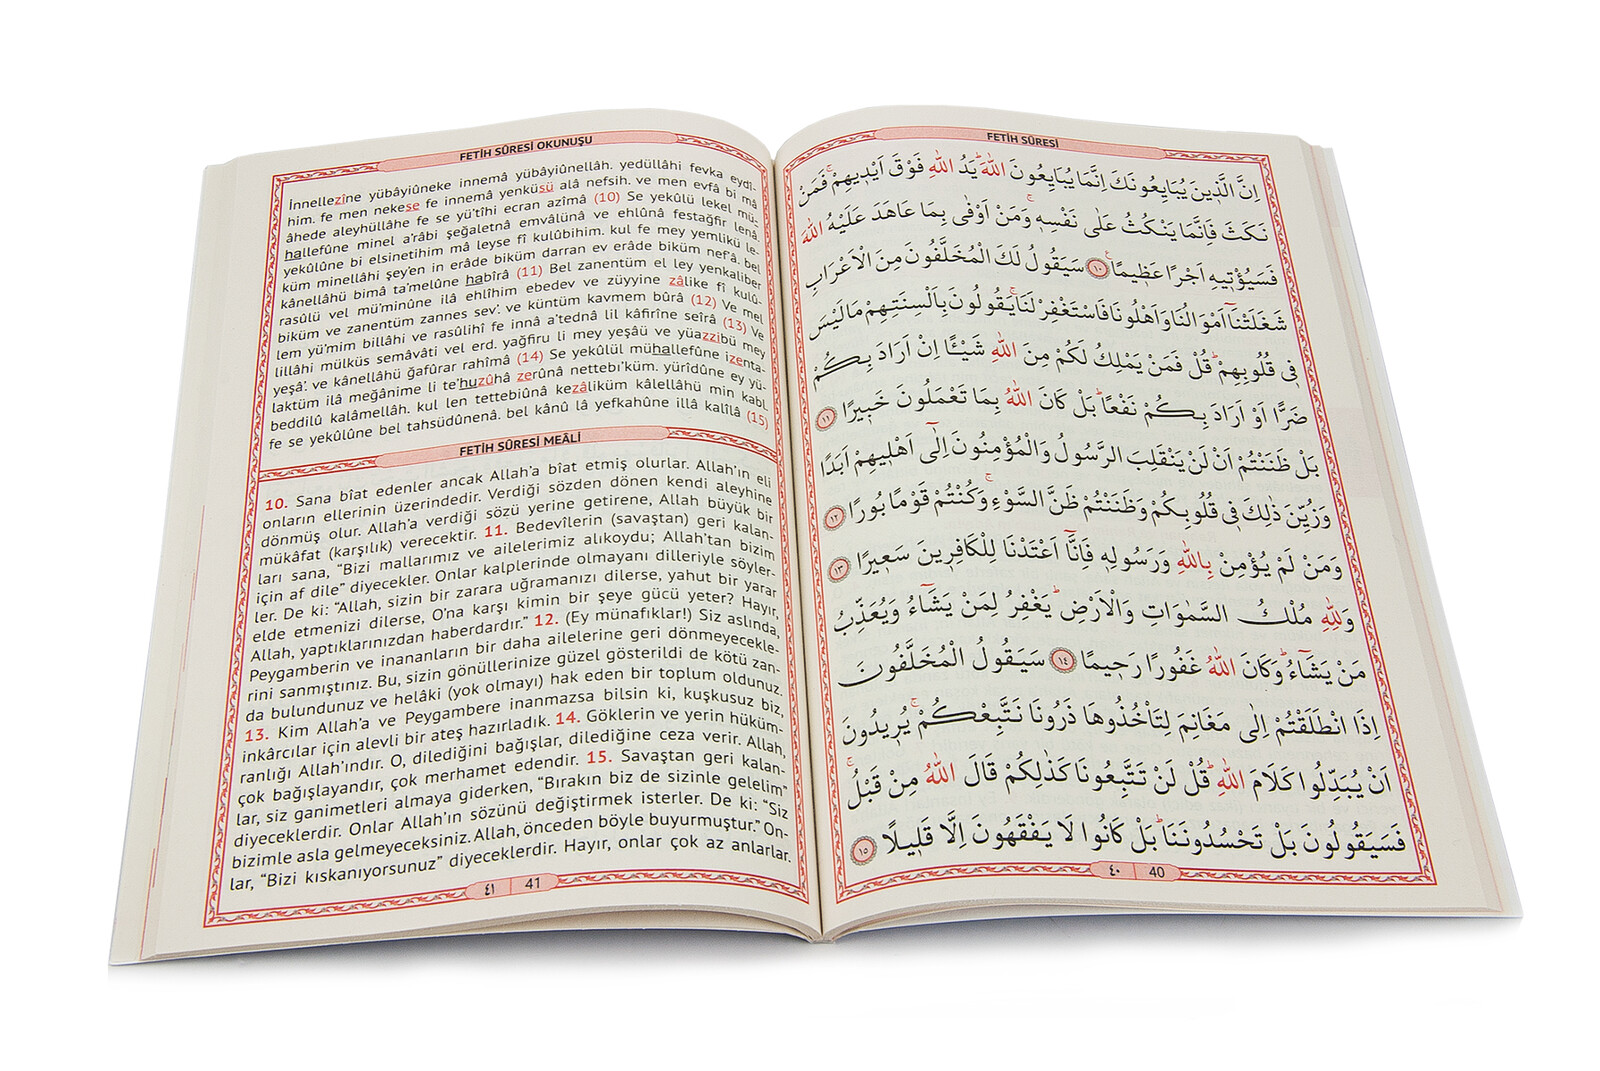 FETİH SÛRESİ
اِنَّ الَّذ۪ينَ يُبَايِعُونَكَ اِنَّمَا يُبَايِعُونَ اللّٰهَۜ يَدُ اللّٰهِ فَوْقَ اَيْد۪يهِمْۚ فَمَنْ
نَكَثَ فَاِنَّمَا يَنْكُثُ عَلٰى نَفْسِه۪ۚ وَمَنْ اَوْفٰى بِمَا عَاهَدَ عَلَيْهُ اللّٰهَ
فَسَيُؤْت۪يهِ اَجْرًا عَظ۪يمًا۟ ١٠ سَيَقُولُ لَكَ الْمُخَلَّفُونَ مِنَ الْاَعْرَابِ
شَغَلَتْنَٓا اَمْوَالُنَا وَاَهْلُونَا فَاسْتَغْفِرْ لَنَاۚ يَقُولُونَ بِاَلْسِنَتِهِمْ مَا لَيْسَ
ف۪ى قُلُوبِهِمْۜ قُلْ فَمَنْ يَمْلِكُ لَكُمْ مِنَ اللّٰهِ شَيْـًٔا اِنْ اَرَادَ بِكُمْ
ضَرًّا اَوْ اَرَادَ بِكُمْ نَفْعًاۜ بَلْ كَانَ اللّٰهُ بِمَا تَعْمَلُونَ خَب۪يرًا ١١
بَلْ ظَنَنْتُمْ اَنْ لَنْ يَنْقَلِبَ الرَّسُولُ وَالْمُؤْمِنُونَ اِلٰٓى اَهْل۪يهِمْ اَبَدًا
وَزُيِّنَ ذٰلِكَ ف۪ى قُلُوبِكُمْ وَظَنَنْتُمْ ظَنَّ السَّوْءِۚ وَكُنْتُمْ قَوْمًا بُورًا ١٢
وَمَنْ لَمْ يُؤْمِنْ بِاللّٰهِ وَرَسُولِه۪ فَاِنَّٓا اَعْتَدْنَا لِلْكَافِر۪ينَ سَع۪يرًا ١٣
وَلِلّٰهِ مُلْكُ السَّمٰوَاتِ وَالْاَرْضِۜ يَغْفِرُ لِمَنْ يَشَٓاءُ وَيُعَذِّبُ
مَنْ يَشَٓاءُۜ وَكَانَ اللّٰهُ غَفُورًا رَح۪يمًا ١٤ سَيَقُولُ الْمُخَلَّفُونَ
اِذَا انْطَلَقْتُمْ اِلٰى مَغَانِمَ لِتَأْخُذُوهَا ذَرُونَا نَتَّبِعْكُمْۚ يُر۪يدُونَ
اَنْ يُبَدِّلُوا كَلَامَ اللّٰهِۜ قُلْ لَنْ تَتَّبِعُونَا كَذٰلِكُمْ قَالَ اللّٰهُ مِنْ قَبْلُۚ
فَسَيَقُولُونَ بَلْ تَحْسُدُونَنَاۜ بَلْ كَانُوا لَا يَفْقَهُونَ اِلَّا قَل۪يلًا ١٥
٤٠ 40
FETİH SÛRESİ OKUNUŞU
İnnellezîne yübâyiûneke innemâ yübâyiûnellâh. yedüllâhi fevka eydî-
him. fe men nekese fe innemâ yenküsü alâ nefsih. ve men evfâ bi mâ
âhede aleyhüllâhe fe se yü'tîhi ecran azîmâ (10) Se yekûlü lekel mü-
hallefûne minel a'râbi şeğaletnâ emvâlünâ ve ehlûnâ festağfir lenâ.
yekûlûne bi elsinetihim mâ leyse fî kulûbihim. kul fe mey yemlikü le-
küm minellâhi şey'en in erâde biküm darran ev erâde biküm nef'â. bel
kânellâhü bimâ ta'melûne habîrâ (11) Bel zanentüm el ley yenkaliber
rasûlü vel mü'minûne ilâ ehlîhim ebedev ve züyyine zâlike fî kulû-
biküm ve zanentüm zannes sev'. ve küntüm kavmem bûrâ (12) Ve mel
lem yü'mim billâhi ve rasûlihî fe innâ a'tednâ lil kâfirîne seîrâ (13) Ve
lillâhi mülküs semâvâti vel erd. yağfiru li mey yeşâü ve yüazzibü mey
yeşâ'. ve kânellâhü ğafûrar rahîmâ (14) Se yekûlül mühallefûne izenta-
laktüm ilâ meğânime li te'huzûhâ zerûnâ nettebi'küm. yürîdûne ey yü-
beddilû kalâmellâh. kul len tettebiûnâ kezâliküm kâlellâhü min kabl.
fe se yekûlûne bel tahsüdûnenâ. bel kânû lâ yefkahûne illâ kalîlâ (15)
FETİH SÛRESİ MEÂLİ
10. Sana bîat edenler ancak Allah'a bîat etmiş olurlar. Allah'ın eli
onların ellerinin üzerindedir. Verdiği sözden dönen kendi aleyhine
dönmüş olur. Allah'a verdiği sözü yerine getirene, Allah büyük bir
mükâfat (karşılık) verecektir. 11. Bedevîlerin (savaştan) geri kalan-
ları sana, “Bizi mallarımız ve ailelerimiz alıkoydu; Allah'tan bizim
için af dile” diyecekler. Onlar kalplerinde olmayanı dilleriyle söyler-
ler. De ki: “Allah, sizin bir zarara uğramanızı dilerse, yahut bir yarar
elde etmenizi dilerse, O'na karşı kimin bir şeye gücü yeter? Hayır,
Allah, yaptıklarınızdan haberdardır.” 12. (Ey münafıklar!) Siz aslında,
Peygamberin ve inananların bir daha ailelerine geri dönmeyecekle-
rini sanmıştınız. Bu, sizin gönüllerinize güzel gösterildi de kötü zan-
da bulundunuz ve helâki (yok olmayı) hak eden bir toplum oldunuz.
13. Kim Allah'a ve Peygambere inanmazsa bilsin ki, kuşkusuz biz,
inkârcılar için alevli bir ateş hazırladık. 14. Göklerin ve yerin hüküm-
ranlığı Allah'ındır. O, dilediğini bağışlar, dilediğine ceza verir. Allah,
çok bağışlayandır, çok merhamet edendir. 15. Savaştan geri kalan-
lar, siz ganimetleri almaya giderken, “Bırakın biz de sizinle gelelim”
diyeceklerdir. Onlar Allah'ın sözünü değiştirmek isterler. De ki: “Siz
bizimle asla gelmeyeceksiniz. Allah, önceden böyle buyurmuştur.” On-
lar, “Bizi kıskanıyorsunuz” diyeceklerdir. Hayır, onlar çok az anlarlar.
٤١ 41